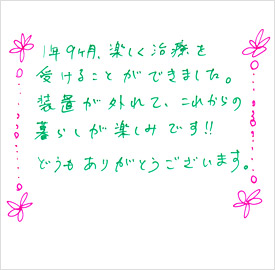 1年9ヶ月、楽しく治療を
受けることができました。
装置が外れて、これからの
暮らしが楽しみです!!
どうもありがとうございます。